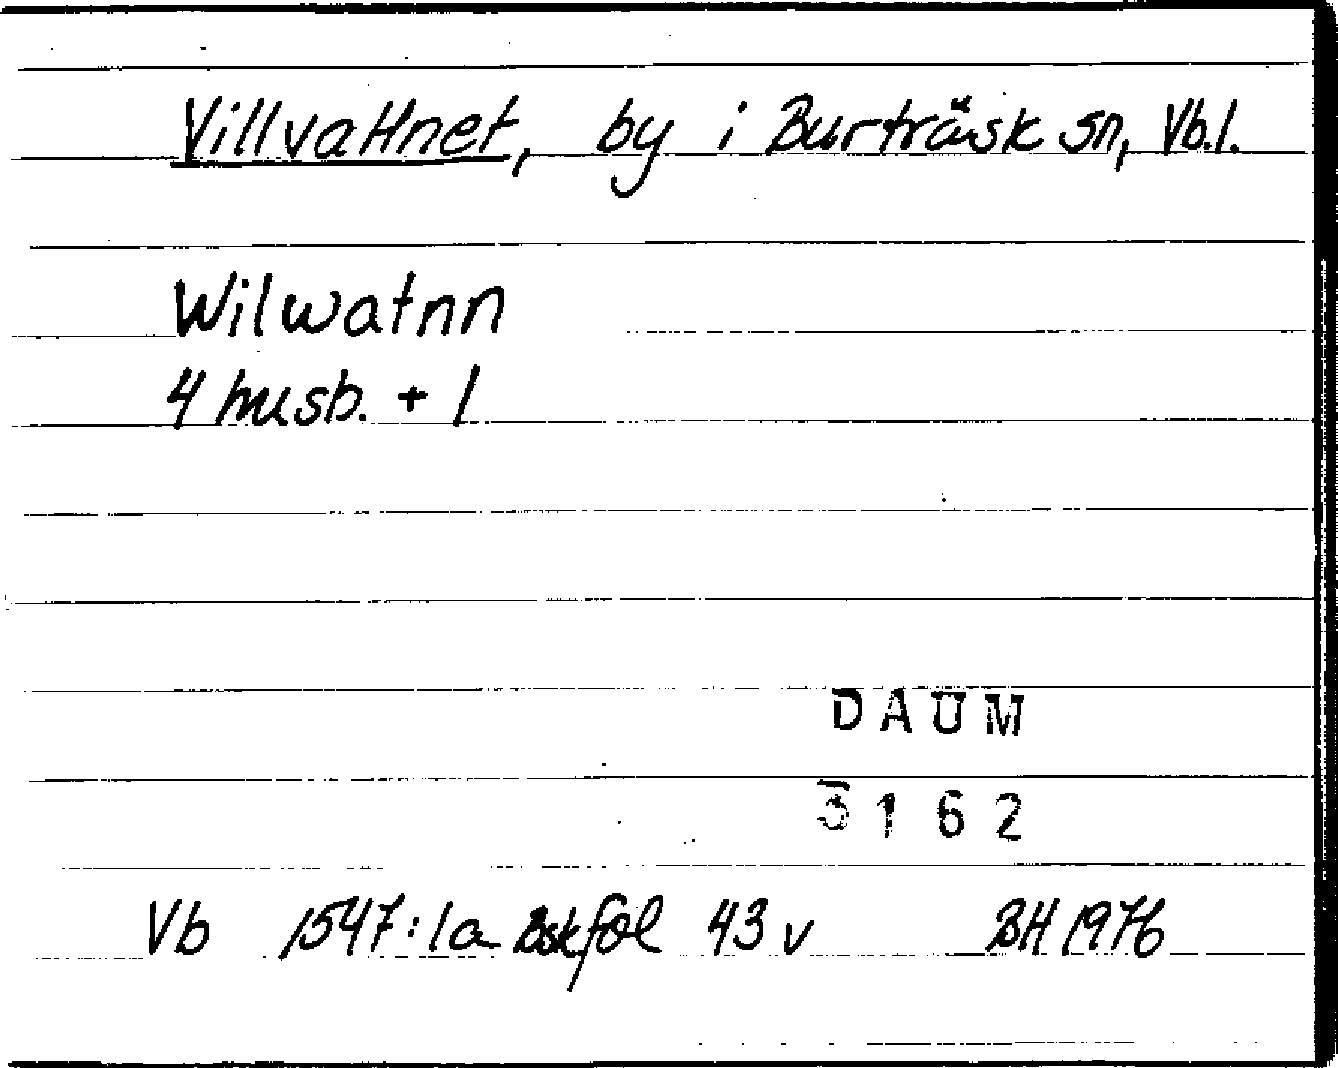 Villvattnet, by i Burträsk sn, Vb.l.
Wilwatnn
4 husb. + 1
DAUM
3162
Vb 1547:1a Bsk fol 43 v BH 1976